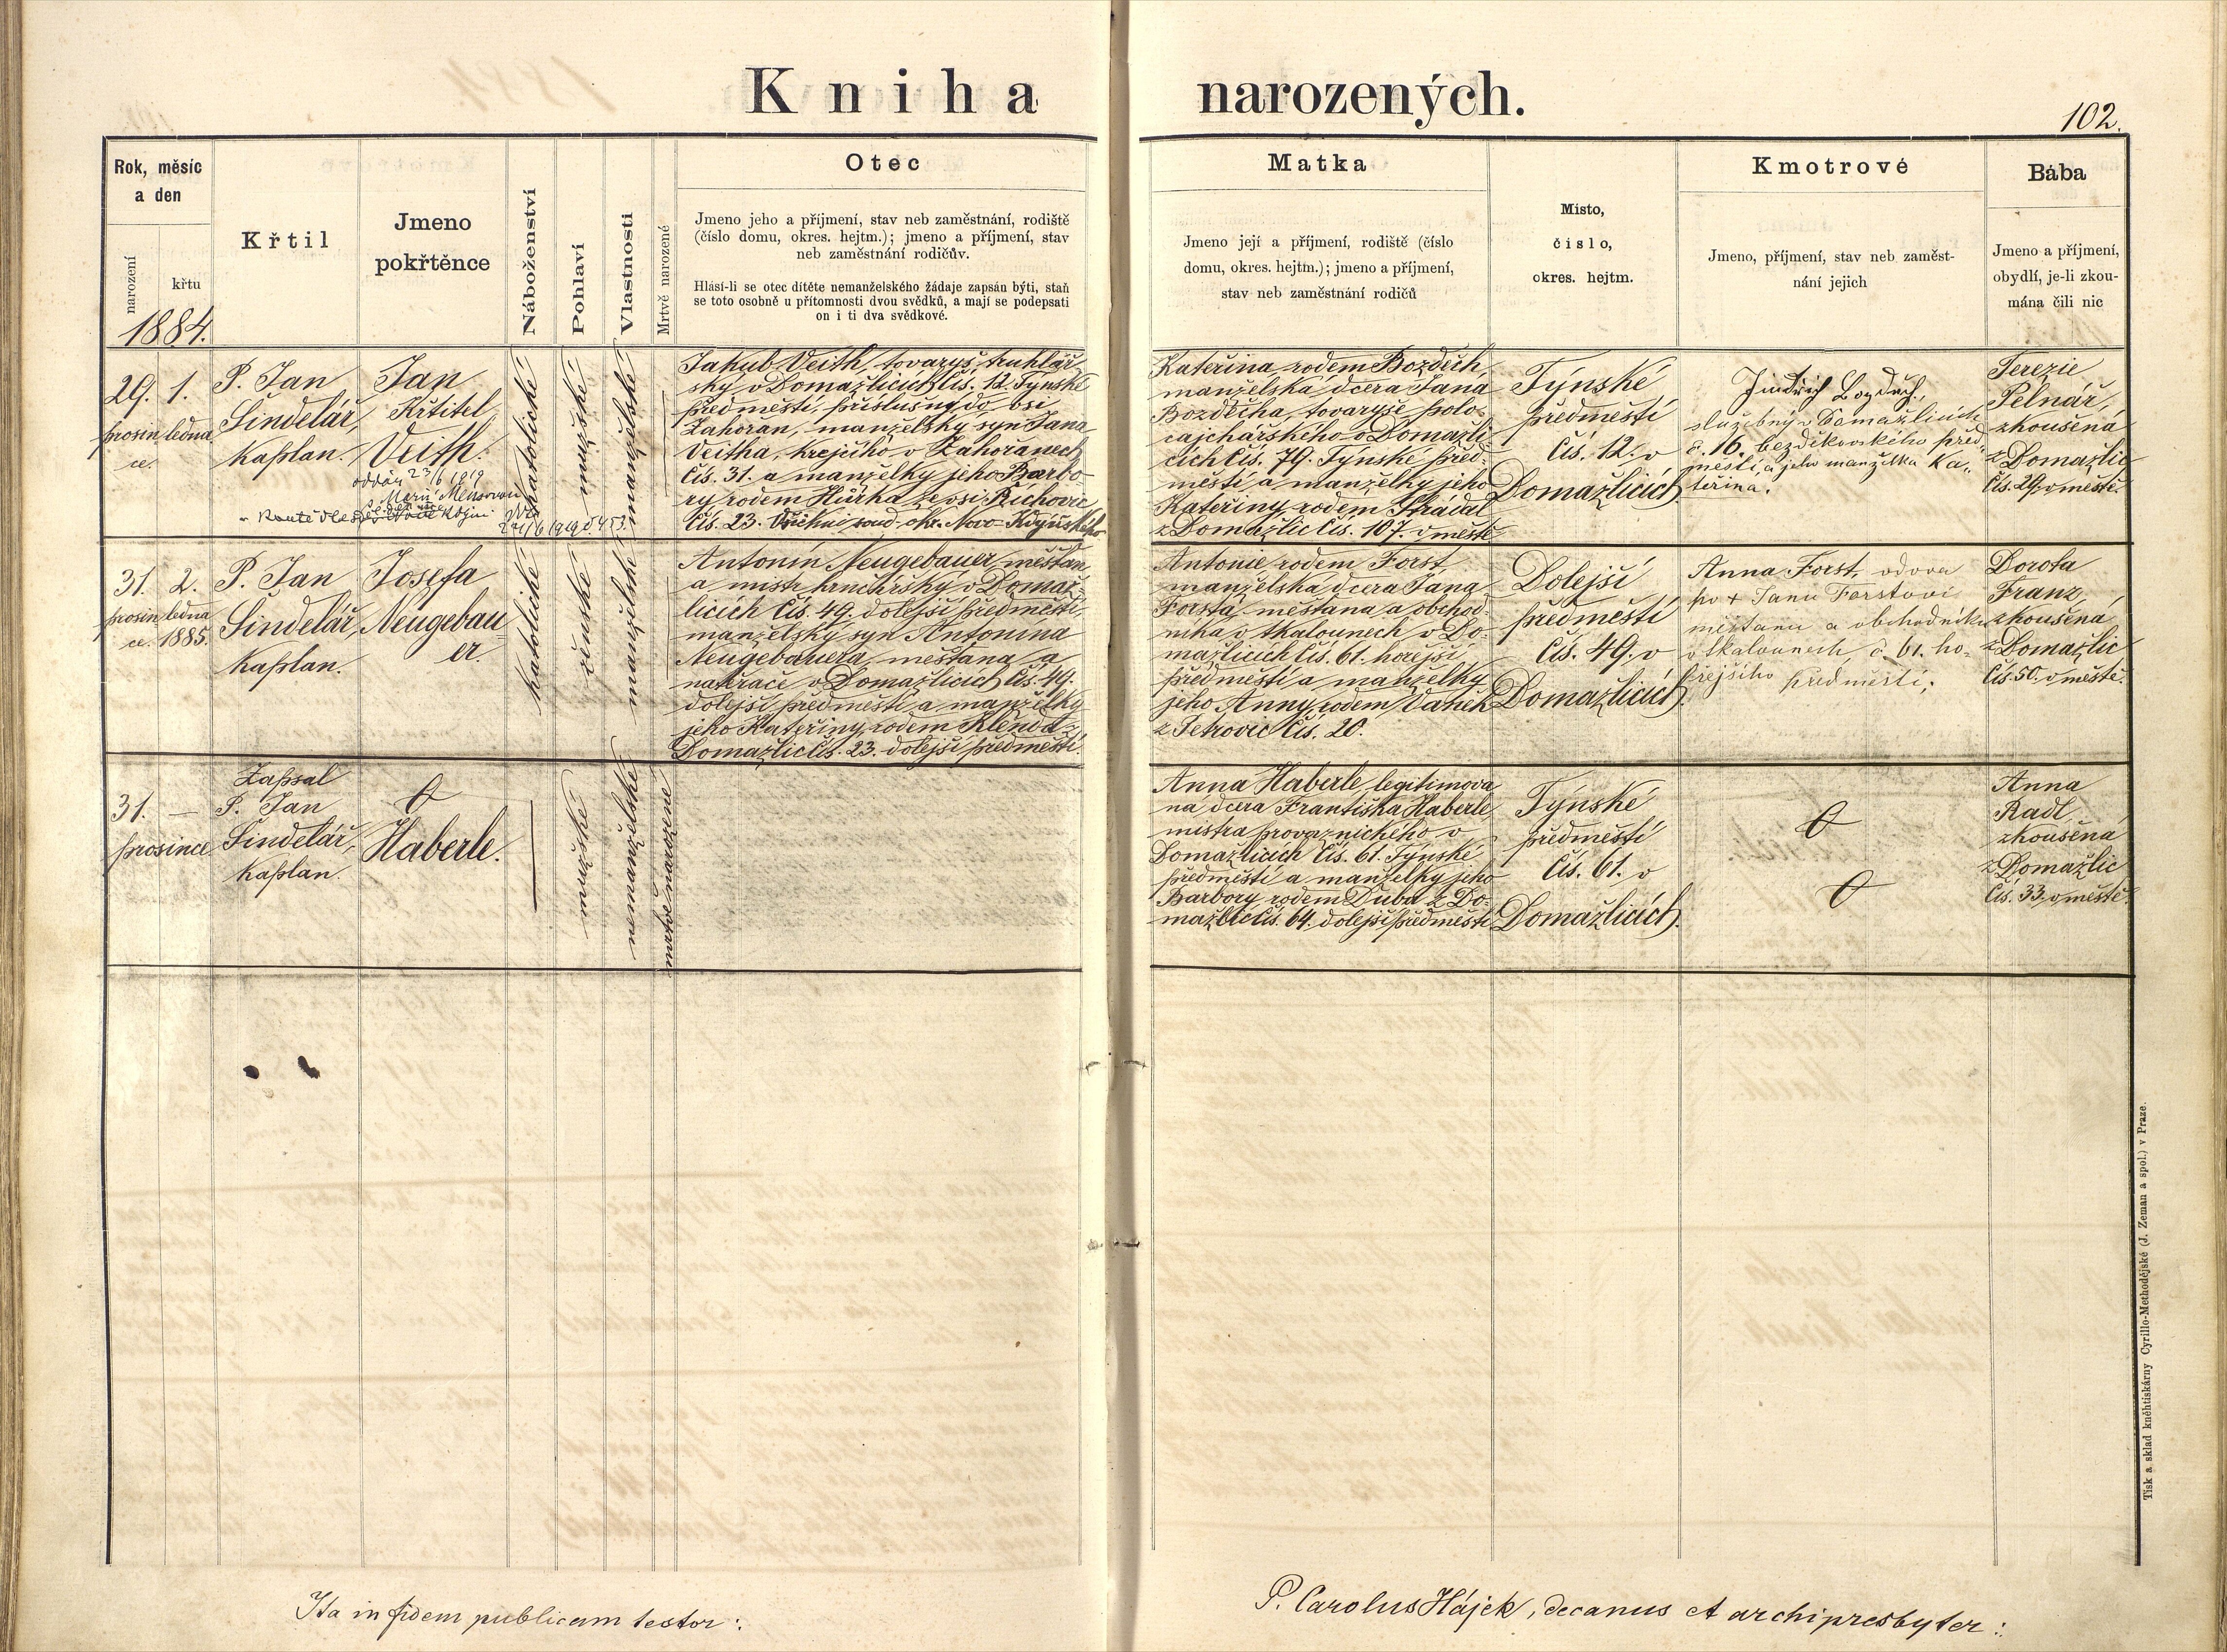 Kniha narozených.
102.
Rok, měsíc
a den
narození
křtu
1884.
Křtil
Jmeno
pokřtěnce
Náboženství
Pohlaví
Vlastnosti
Mrtvě narozené
Otec
Jmeno jeho a příjmení, stav neb zaměstnání, rodiště
(číslo domu, okres. hejtm.); jmeno a příjmení, stav
neb zaměstnání rodičův.
Hlásí-li se otec dítěte nemanželského žádaje zapsán býti, staň
se toto osobně u přítomnosti dvou svědků, a mají se podepsati
on i ti dva svědkové.
Matka
Jmeno její a příjmení, rodiště (číslo
domu, okres. hejtm.); jmeno a příjmení,
stav neb zaměstnání rodičů
Misto,
číslo,
okres. hejtm.
Kmotrové
Jmeno, příjmení, stav neb zaměst-
nání jejich
Bába
Jmeno a příjmení,
obydlí, je-li zkou-
mána čili nic
29.
prosin
ce.
1.
ledna
P. Jan
Šindelář,
kaplan.
Jan
Křtitel
Veith.
oddán 23/6 1919
s Marií
katolické
mužské
manželské
Jakub Veith, tovaryš truhlář
ský v Domažlicích čís. 12. Týnské
předměstí, příslušný do vsi
Zahořan, manželský syn Jana
Veitha, krejčího v Zahořanech
čís. 31. a manželky jeho Barbo-
ry rodem Hůrka ze vsi Říchovic
čís. 23. Všichni soud. okr. Novo-Kdyňského
Kateřina rodem Bozděch,
manželská dcera Jana
Bozděcha, tovaryše polo-
cajchářského v Domažli-
cích čís. 79. Týnské před-
městí a manželky jeho
Kateřiny rodem Strádal
z Domažlic čís. 107. v městě
Týnské
předměstí
čís. 12. v
Domažlicích.
Jindřich Bozděch,
služebný v Domažlicích
č. 16. bezděkovského před
městí, a jeho manželka Ka-
teřina.
Terezie
Pelnář,
zkoušená
z Domažlic
čís. 29. v městě.
31.
prosin
ce.
2.
ledna
1885.
P. Jan
Šindelář,
kaplan.
Josefa
Neugebau
er.
katolické
ženské
manželské
Antonín Neugebauer, měšťan
a mistr hrnčířský v Domaž-
licích čís. 49. dolejší předměstí,
manželský syn Antonína
Neugebauera, měšťana a
natěrače v Domažlicích čís. 49.
dolejší předměstí a manželky
jeho Kateřiny rodem Klenda z
Domažlic čís. 23. dolejší předměstí.
Antonie rodem Forst
manželská dcera Jana
Forsta, měšťana a obchod-
níka v tkalounech v Do-
mažlicích čís. 61. hořejší
předměstí a manželky
jeho Anny rodem Vaněk
z Petrovic čís. 20.
Dolejší
předměstí
čís. 49. v
Domažlicích.
Anna Forst, vdova
po + Janu Forstovi
měšťanu a obchodníku
v tkalounech, č. 61. ho-
řejšího předměstí.
Dorota
Franz,
zkoušená
z Domažlic
čís. 50. v městě.
31.
prosince
—
Zapsal
P. Jan
Šindelář,
kaplan.
Haberle.
mužské
nemanželské
mrtvě narozené
Anna Haberle, legitimova
ná dcera Františka Haberle,
mistra provaznického v
Domažlicích čís. 61. Týnské
předměstí a manželky jeho
Barbory rodem Duba z Do-
mažlic čís. 64. dolejší předměstí
Týnské
předměstí
čís. 61. v
Domažlicích.
Anna
Radl,
zkoušená
z Domažlic
čís. 33. v městě.
Ita in fidem publicam testor:
P. Carolus Hájek, decanus et archipresbyter:
Tisk a sklad kněhtiskárny Cyrillo-Methodějské (J. Zeman a spol.) v Praze.